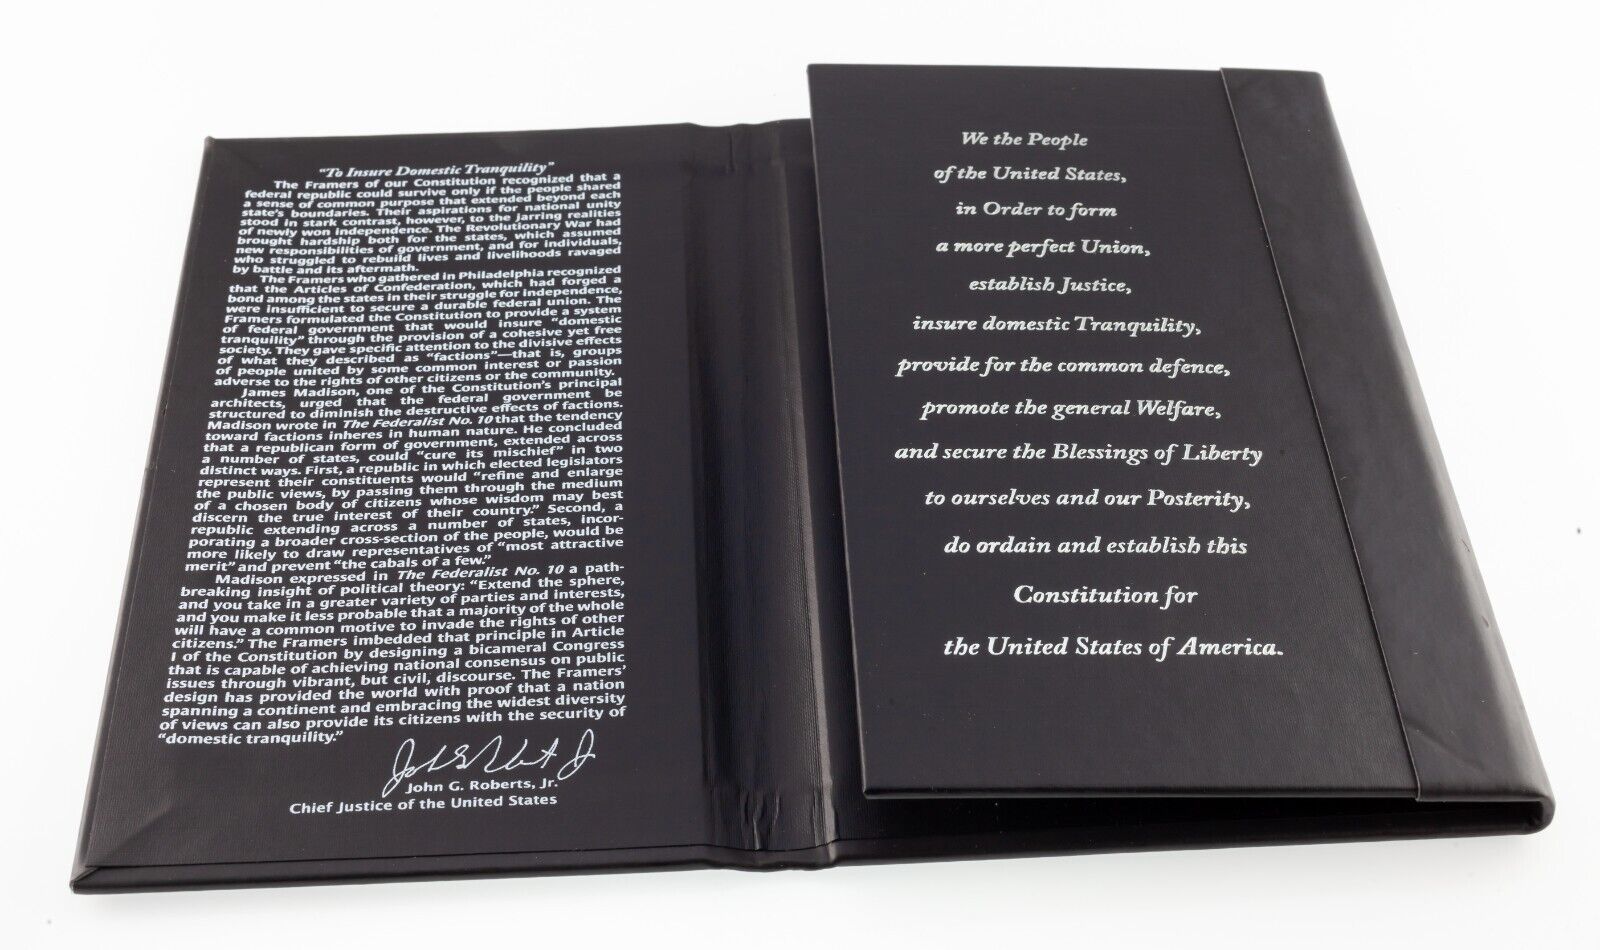 "To Insure Domestic Tranquility"
The Framers of our Constitution recognized that a
federal republic could survive only if the people shared
a sense of common purpose that extended beyond each
state's boundaries. Their aspirations for national unity
stood in stark contrast, however, to the jarring realities
of newly won independence. The Revolutionary War had
brought hardship both for the states, which assumed
new responsibilities of government, and for individuals,
who struggled to rebuild lives and livelihoods ravaged
by battle and its aftermath.
The Framers who gathered in Philadelphia recognized
that the Articles of Confederation, which had forged a
bond among the states in their struggle for independence,
were insufficient to secure a durable federal union. The
Framers formulated the Constitution to provide a system
of federal government that would insure "domestic
tranquility" through the provision of a cohesive yet free
society. They gave specific attention to the divisive effects
of what they described as "factions"—that is, groups
of people united by some common interest or passion
adverse to the rights of other citizens or the community.
James Madison, one of the Constitution's principal
architects, urged that the federal government be
structured to diminish the destructive effects of factions.
Madison wrote in The Federalist No. 10 that the tendency
toward factions inheres in human nature. He concluded
that a republican form of government, extended across
a number of states, could "cure its mischief" in two
distinct ways. First, a republic in which elected legislators
represent their constituents would "refine and enlarge
the public views, by passing them through the medium
of a chosen body of citizens whose wisdom may best
discern the true interest of their country." Second, a
republic extending across a number of states, incor-
porating a broader cross-section of the people, would be
more likely to draw representatives of "most attractive
merit" and prevent "the cabals of a few."
Madison expressed in The Federalist No. 10 a path-
breaking insight of political theory: "Extend the sphere,
and you take in a greater variety of parties and interests,
and you make it less probable that a majority of the whole
will have a common motive to invade the rights of other
citizens." The Framers imbedded that principle in Article
I of the Constitution by designing a bicameral Congress
that is capable of achieving national consensus on public
issues through vibrant, but civil, discourse. The Framers'
design has provided the world with proof that a nation
spanning a continent and embracing the widest diversity
of views can also provide its citizens with the security of
"domestic tranquility."
John G. Roberts, Jr.
John G. Roberts, Jr.
Chief Justice of the United States
We the People
of the United States,
in Order to form
a more perfect Union,
establish Justice,
insure domestic Tranquility,
provide for the common defence,
promote the general Welfare,
and secure the Blessings of Liberty
to ourselves and our Posterity,
do ordain and establish this
Constitution for
the United States of America.